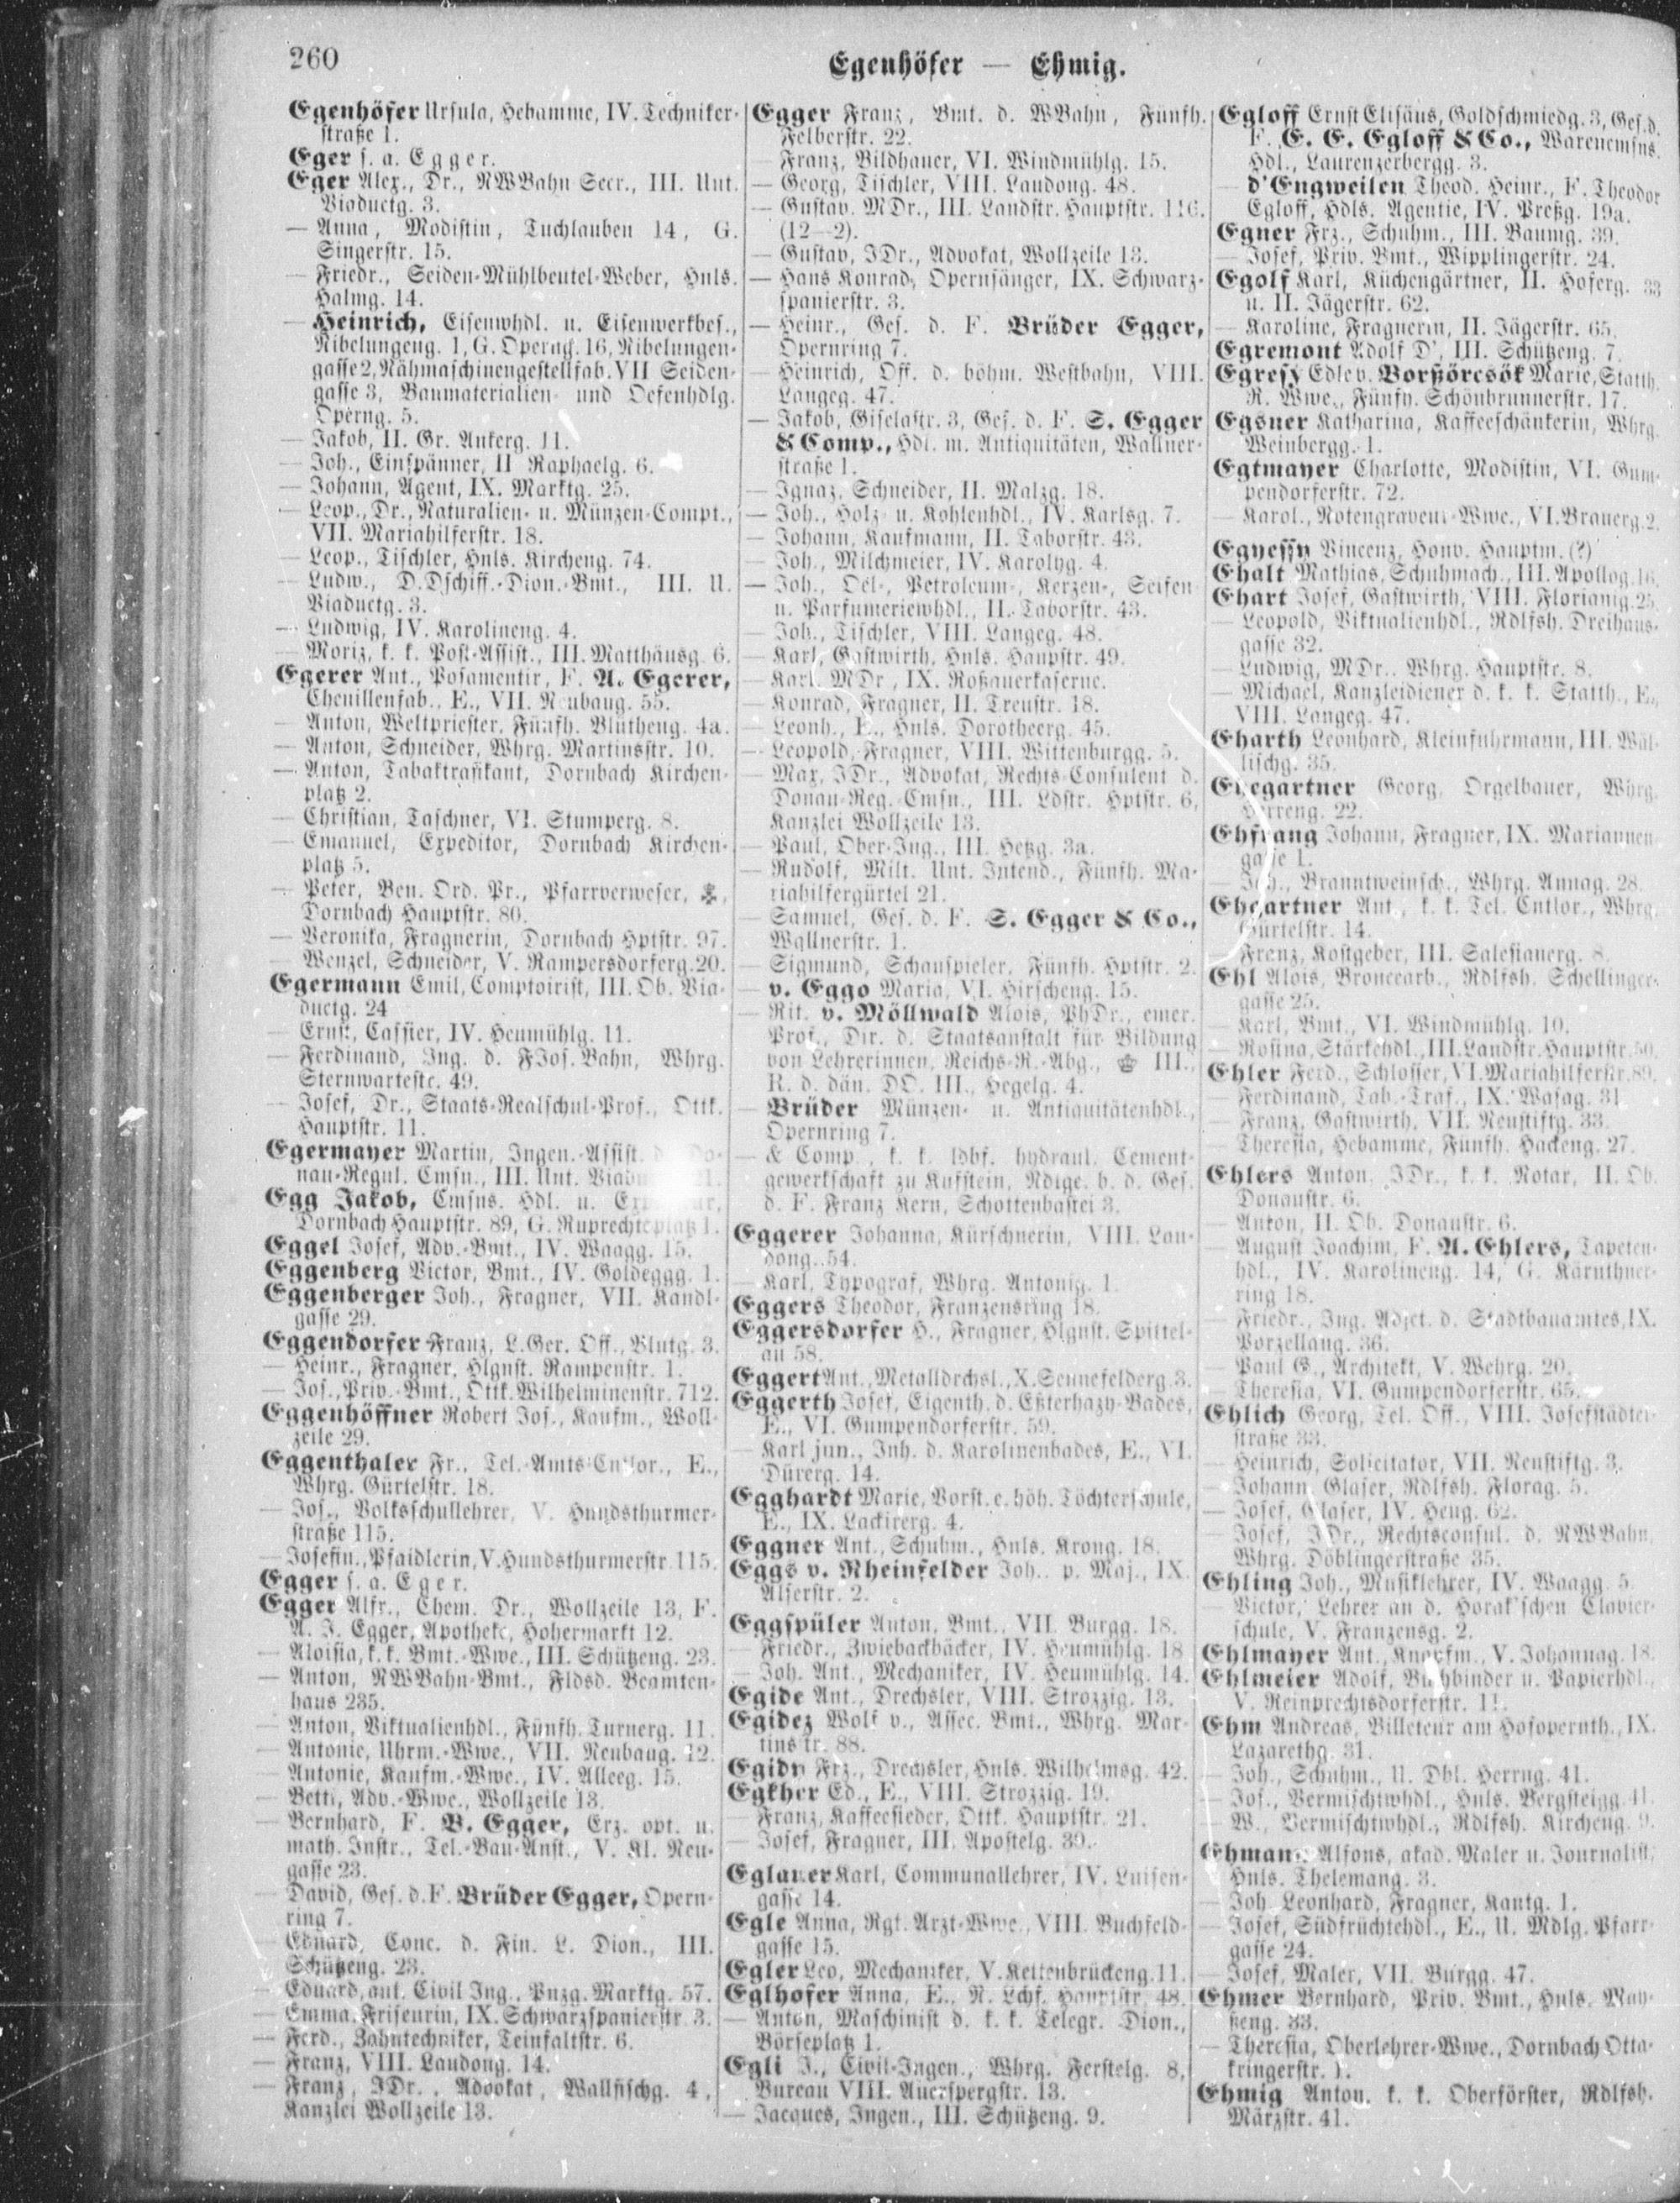 260
Egenhöfer — Ehmig.
Egenhöfer Ursula, Hebamme, IV. Techniker-
straße 1.
Eger s. a. Egger.
Eger Alex., Dr., NWBahn Secr., III. Unt.
Viaductg. 3.
— Anna, Modistin, Tuchlauben 14, G.
Singerstr. 15.
— Friedr., Seiden-Mühlbeutel-Weber, Hnls.
Halmg. 14.
— Heinrich, Eisenwhdl. u. Eisenwerkbes.,
Nibelungeng. 1, G. Operng. 16, Nibelungen-
gasse 2, Nähmaschinengestellfab. VII Seiden-
gasse 3, Baumaterialien- und Oefenhdlg.
Operng. 5.
— Jakob, II. Gr. Ankerg. 11.
— Joh., Einspänner, II Raphaelg. 6.
— Johann, Agent, IX. Marktg. 25.
— Leop., Dr., Naturalien- u. Münzen-Compt.,
VII. Mariahilferstr. 18.
— Leop., Tischler, Hnls. Kircheng. 74.
— Ludw., D.Dschiff.-Dion.-Bmt., III. U.
Viaductg. 3.
— Ludwig, IV. Karolineng. 4.
— Moriz, k. k. Post-Assist., III. Matthäusg. 6.
Egerer Ant., Posamentir, F. A. Egerer,
Chenillenfab., E., VII. Neubaug. 55.
— Anton, Weltpriester, Fünfh. Blütheng. 4a.
— Anton, Schneider, Whrg. Martinsstr. 10.
— Anton, Tabaktrafikant, Dornbach Kirchen-
platz 2.
— Christian, Taschner, VI. Stumperg. 8.
— Emanuel, Expeditor, Dornbach Kirchen-
platz 5.
— Peter, Ben. Ord. Pr., Pfarrverweser,
Dornbach Hauptstr. 80.
— Veronika, Fragnerin, Dornbach Hptstr. 97.
— Wenzel, Schneider, V. Rampersdorferg. 20.
Egermann Emil, Comptoirist, III. Ob. Via-
ductg. 24
— Ernst, Cassier, IV. Heumühlg. 11.
— Ferdinand, Ing. d. FJos.Bahn, Whrg.
Sternwartestr. 49.
— Josef, Dr., Staats-Realschul-Prof., Ottk.
Hauptstr. 11.
Egermayer Martin, Ingen.-Assist. d. Do-
nau-Regul. Cmsn., III. Unt. 21.
Egg Jakob, Cmsns. Hdl. u.
Dornbach Hauptstr. 89, G. Ruprechtsplatz 1.
Eggel Josef, Adv.-Bmt., IV. Waagg. 15.
Eggenberg Victor, Bmt., IV. Goldeggg. 1.
Eggenberger Joh., Fragner, VII. Kandl-
gasse 29.
Eggendorfer Franz, L.Ger. Off., Blutg. 3.
— Heinr., Fragner, Hlgnst. Rampenstr. 1.
— Jos., Priv.-Bmt., Ottk. Wilhelminenstr. 712.
Eggenhöffner Robert Jos., Kaufm., Woll-
zeile 29.
Eggenthaler Fr., Tel.-Amts-Cntlor., E.,
Whrg. Gürtelstr. 18.
— Jos., Volksschullehrer, V. Hundsthurmer-
straße 115.
— Josefin., Pfaidlerin, V. Hundsthurmerstr. 115.
Egger s. a. Eger.
Egger Alfr., Chem. Dr., Wollzeile 13, F.
A. J. Egger, Apotheke, Hohermarkt 12.
— Aloisia, k. k. Bmt.-Wwe., III. Schützeng. 23.
— Anton, NWBahn-Bmt., Fldsd. Beamten-
haus 235.
— Anton, Viktualienhdl., Fünfh. Turnerg. 11.
— Antonie, Uhrm.-Wwe., VII. Neubaug. 12.
— Antonie, Kaufm.-Wwe., IV. Alleeg. 15.
— Betti, Adv.-Wwe., Wollzeile 13.
— Bernhard, F. B. Egger, Erz. opt. u.
math. Instr., Tel.-Bau-Anst., V. Kl. Neu-
gasse 23.
— David, Ges. d. F. Brüder Egger, Opern-
ring 7.
— Eduard, Conc. d. Fin. L. Dion., III.
Schützeng. 23.
— Eduard, aut. Civil Ing., Pnzg. Marktg. 57.
— Emma, Friseurin, IX. Schwarzspanierstr. 3.
— Ferd., Zahntechniker, Teinfaltstr. 6.
— Franz, VIII. Laudong. 14.
— Franz, JDr., Advokat, Wallfischg. 4,
Kanzlei Wollzeile 13.
Egger Franz, Bmt. d. WBahn, Fünfh.
Felberstr. 22.
— Franz, Bildhauer, VI. Windmühlg. 15.
— Georg, Tischler, VIII. Laudong. 48.
— Gustav, MDr., III. Landstr. Hauptstr. 116.
(12—2).
— Gustav, JDr., Advokat, Wollzeile 13.
— Hans Konrad, Opernsänger, IX. Schwarz-
spanierstr. 3.
— Heinr., Ges. d. F. Brüder Egger,
Opernring 7.
— Heinrich, Off. d. böhm. Westbahn, VIII.
Langeg. 47.
— Jakob, Giselastr. 3, Ges. d. F. S. Egger
& Comp., Hdl. m. Antiquitäten, Wallner-
straße 1.
— Ignaz, Schneider, II. Malzg. 18.
— Joh., Holz- u. Kohlenhdl., IV. Karlsg. 7.
— Johann, Kaufmann, II. Taborstr. 43.
— Joh., Milchmeier, IV. Karolyg. 4.
— Joh., Oel-, Petroleum-, Kerzen-, Seifen
u. Parfumeriewhdl., II. Taborstr. 43.
— Joh., Tischler, VIII. Langeg. 48.
— Karl, Gastwirth, Hnls. Haupstr. 49.
— Karl MDr., IX. Roßauerkaserne.
— Konrad, Fragner, II. Treustr. 18.
— Leonh., E., Hnls. Dorotheerg. 45.
— Leopold, Fragner, VIII. Wittenburgg. 5.
— Max, JDr., Advokat, Rechts-Consulent d.
Donau-Reg.-Cmsn., III. Ldstr. Hptstr. 6,
Kanzlei Wollzeile 13.
— Paul, Ober-Ing., III. Hetzg. 3a.
— Rudolf, Milt. Unt. Intend., Fünfh. Ma-
riahilfergürtel 21.
— Samuel, Ges. d. F. S. Egger & Co.,
Wallnerstr. 1.
— Sigmund, Schauspieler, Fünfh. Hptstr. 2.
— v. Eggo Maria, VI. Hirscheng. 15.
— Rit. v. Möllwald Alois, PhDr., emer.
Prof., Dir. d. Staatsanstalt für Bildung
von Lehrerinnen, Reichs-R.-Abg., III.,
R. d. dän. DO. III., Hegelg. 4.
— Brüder Münzen- u. Antiquitätenhdl.,
Opernring 7.
— & Comp., k. k. ldbf. hydraul. Cement-
gewerkschaft zu Kufstein, Ndlge. b. d. Ges.
d. F. Franz Kern, Schottenbastei 3.
Eggerer Johanna, Kürschnerin, VIII. Lau-
dong. 54.
— Karl, Typograf, Whrg. Antonig. 1.
Eggers Theodor, Franzensring 18.
Eggersdorfer H., Fragner, Hlgnst. Spittel-
au 58.
Eggert Ant., Metalldrchsl., X. Sennefelderg. 3.
Eggerth Josef, Eigenth. d. Eßterhazy-Bades,
E., VI. Gumpendorferstr. 59.
— Karl jun., Inh. d. Karolinenbades, E., VI.
Dürerg. 14.
Egghardt Marie, Vorst. e. höh. Töchterschule,
E., IX. Lackirerg. 4.
Eggner Ant., Schuhm., Hnls. Krong. 18.
Eggs v. Rheinfelder Joh., p. Maj., IX.
Alserstr. 2.
Eggspüler Anton, Bmt., VII. Burgg. 18.
— Friedr., Zwiebackbäcker, IV. Heumühlg. 18
— Joh. Ant., Mechaniker, IV. Heumühlg. 14.
Egide Ant., Drechsler, VIII. Strozzig. 13.
Egidez Wolf v., Assec. Bmt., Whrg. Mar-
tinstr. 88.
Egidy Frz., Drechsler, Hnls. Wilhelmsg. 42.
Egkher Ed., E., VIII. Strozzig. 19.
— Franz, Kaffeesieder, Ottk. Hauptstr. 21.
— Josef, Fragner, III. Apostelg. 39.
Eglauer Karl, Communallehrer, IV. Luisen-
gasse 14.
Egle Anna, Rgt. Arzt-Wwe., VIII. Buchfeld-
gasse 15.
Egler Leo, Mechaniker, V. Kettenbrückeng. 11.
Eglhofer Anna, E., R. Lchf. Hauptstr. 48.
— Anton, Maschinist d. k. k. Telegr. Dion.,
Börseplatz 1.
Egli J., Civil-Ingen., Whrg. Ferstelg. 8,
Bureau VIII. Auerspergstr. 13.
— Jacques, Ingen., III. Schützeng. 9.
Egloff Ernst Elisäus, Goldschmiedg. 3, Ges. d.
F. E. E. Egloff & Co., Warencmsns.
Hdl., Laurenzerbergg. 3.
— d'Engweilen Theod. Heinr., F. Theodor
Egloff, Hdls. Agentie, IV. Preßg. 19a.
Egner Frz., Schuhm., III. Baumg. 39.
— Josef, Priv. Bmt., Wipplingerstr. 24.
Egolf Karl, Küchengärtner, II. Hoferg. 33
u. II. Jägerstr. 62.
— Karoline, Fragnerin, II. Jägerstr. 65.
Egremont Adolf D', III. Schützeng. 7.
Egresy Edle v. Borßörcsök Marie, Statth.
R. Wwe., Fünfh. Schönbrunnerstr. 17.
Egsner Katharina, Kaffeeschänkerin, Whrg.
Weinbergg. 1.
Egtmayer Charlotte, Modistin, VI. Gum-
pendorferstr. 72.
— Karol., Notengraveur-Wwe., VI. Brauerg. 2.
Egyessy Vincenz, Honv. Hauptm. (?)
Ehalt Mathias, Schuhmach., III. Apollog. 16.
Ehart Josef, Gastwirth, VIII. Florianig. 25.
— Leopold, Viktualienhdl., Rdlfsh. Dreihaus-
gasse 32.
— Ludwig, MDr., Whrg. Hauptstr. 8.
— Michael, Kanzleidiener d. k. k. Statth., E.,
VIII. Langeg. 47.
Eharth Leonhard, Kleinfuhrmann, III. Wäl-
lischg. 35.
Ehegartner Georg, Orgelbauer, Whrg.
Herreng. 22.
Ehfrang Johann, Fragner, IX. Mariannen-
gasse 1.
— Joh., Branntweinsch., Whrg. Annag. 28.
Ehgartner Ant., k. k. Tel. Cntlor., Whrg.
Gürtelstr. 14.
— Franz, Kostgeber, III. Salesianerg. 8.
Ehl Alois, Broncearb., Rdlfsh. Schellinger-
gasse 25.
— Karl, Bmt., VI. Windmühlg. 10.
— Rosina, Stärkehdl., III. Landstr. Hauptstr. 50.
Ehler Ferd., Schlosser, VI. Mariahilferstr. 89.
— Ferdinand, Tab.-Traf., IX. Wasag. 31.
— Franz, Gastwirth, VII. Neustiftg. 33.
— Theresia, Hebamme, Fünfh. Hackeng. 27.
Ehlers Anton, JDr., k. k. Notar, II. Ob.
Donaustr. 6.
— Anton, II. Ob. Donaustr. 6.
— August Joachim, F. A. Ehlers, Tapeten-
hdl., IV. Karolineng. 14, G. Kärnthner-
ring 18.
— Friedr., Ing. Adjct. d. Stadtbauamtes, IX.
Porzellang. 36.
— Paul G., Architekt, V. Wehrg. 20.
— Theresia, VI. Gumpendorferstr. 65.
Ehlich Georg, Tel. Off., VIII. Josefstädter-
straße 33.
— Heinrich, Solicitator, VII. Neustiftg. 3.
— Johann, Glaser, Rdlfsh. Florag. 5.
— Josef, Glaser, IV. Heug. 62.
— Josef, JDr., Rechtsconsul. d. NWBahn,
Whrg. Döblingerstraße 35.
Ehling Joh., Musiklehrer, IV. Waagg. 5.
— Victor, Lehrer an d. Horak'schen Clavier-
schule, V. Franzensg. 2.
Ehlmayer Ant., Knopfm., V. Johannag. 18.
Ehlmeier Adolf, Buchbinder u. Papierhdl.,
V. Reinprechtsdorferstr. 11.
Ehm Andreas, Billeteur am Hofopernth., IX.
Lazarethg. 31.
— Joh., Schuhm., U. Dbl. Herrng. 41.
— Jos., Vermischtwhdl., Hnls. Bergsteigg. 41.
— W., Vermischtwhdl., Rdlfsh. Kircheng. 9.
Ehmann Alfons, akad. Maler u. Journalist,
Hnls. Thelemang. 3.
— Joh. Leonhard, Fragner, Kantg. 1.
— Josef, Südfrüchtehdl., E., U. Mdlg. Pfarr-
gasse 24.
— Josef, Maler, VII. Burgg. 47.
Ehmer Bernhard, Priv. Bmt., Hnls. May-
ßeng. 33.
— Theresia, Oberlehrer-Wwe., Dornbach Otta-
kringerstr. 1.
Ehmig Anton, k. k. Oberförster, Rdlfsh.
Märzstr. 41.